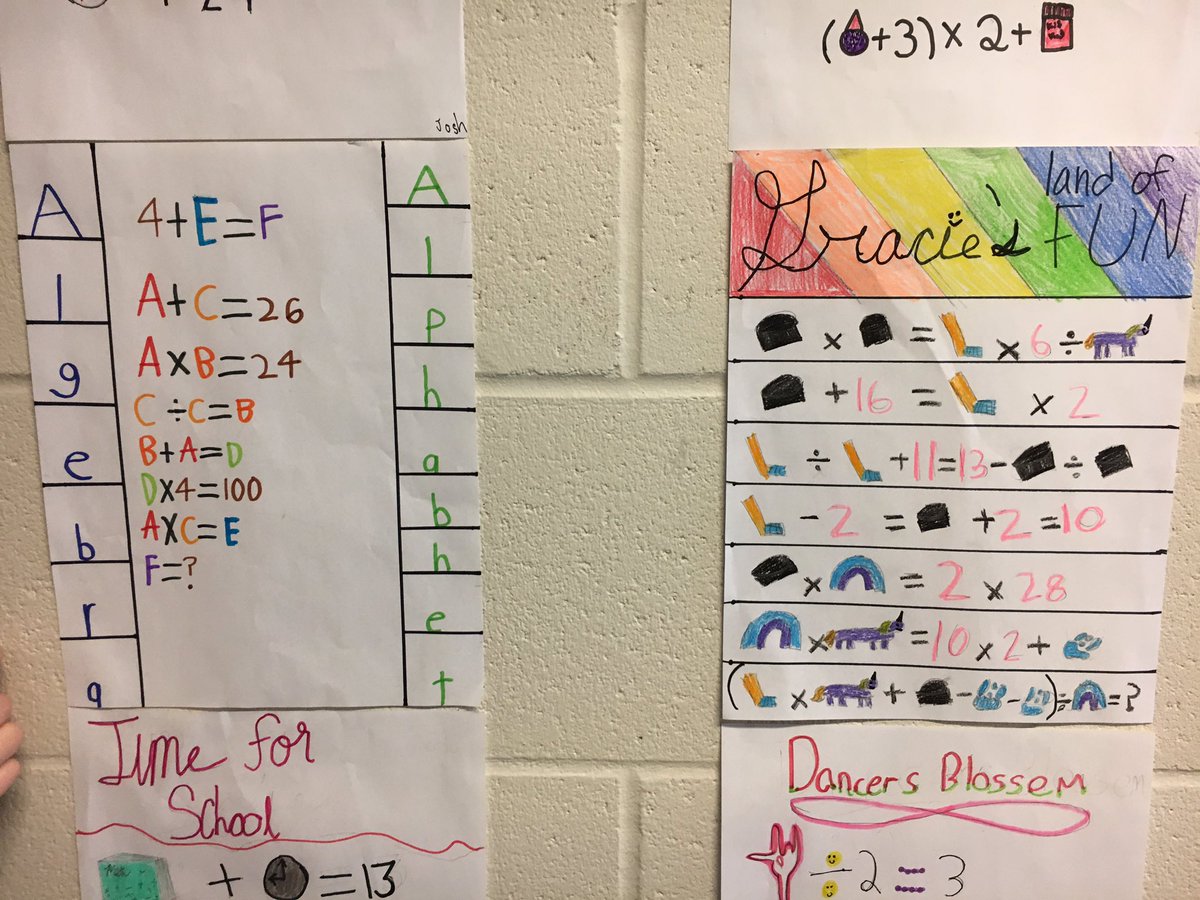 Josh
A
l
g
e
b
r
a
4+E=F
A+C=26
A×B=24
C÷C=B
B+A=D
D×4=100
A×C=E
F=?
A
l
p
h
a
b
h
e
t
Time for
School
+ =13
( +3)×2+
Gracie's land of FUN
× = ×6÷
+16 = ×2
÷ +11=13- ÷
-2 = +2=10
× =2×28
× =10×2+
( × + - - )÷ =?
Dancers Blossem
÷2=3